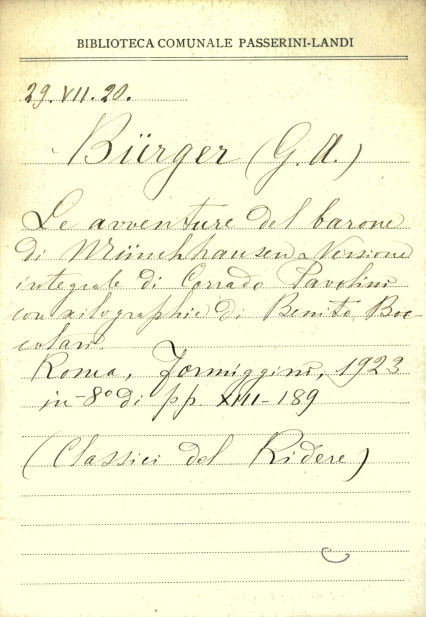 BIBLIOTECA COMUNALE PASSERINI-LANDI
29.VII.20.
Bürger (G. A.)
Le avventure del barone
di Münchhausen. Versione
integrale di Corrado Pavolini
con xilographie di Benito Boc-
colari.
Roma, Formiggini, 1923
in-8º di pp. XIII-189
(Classici del Ridere)